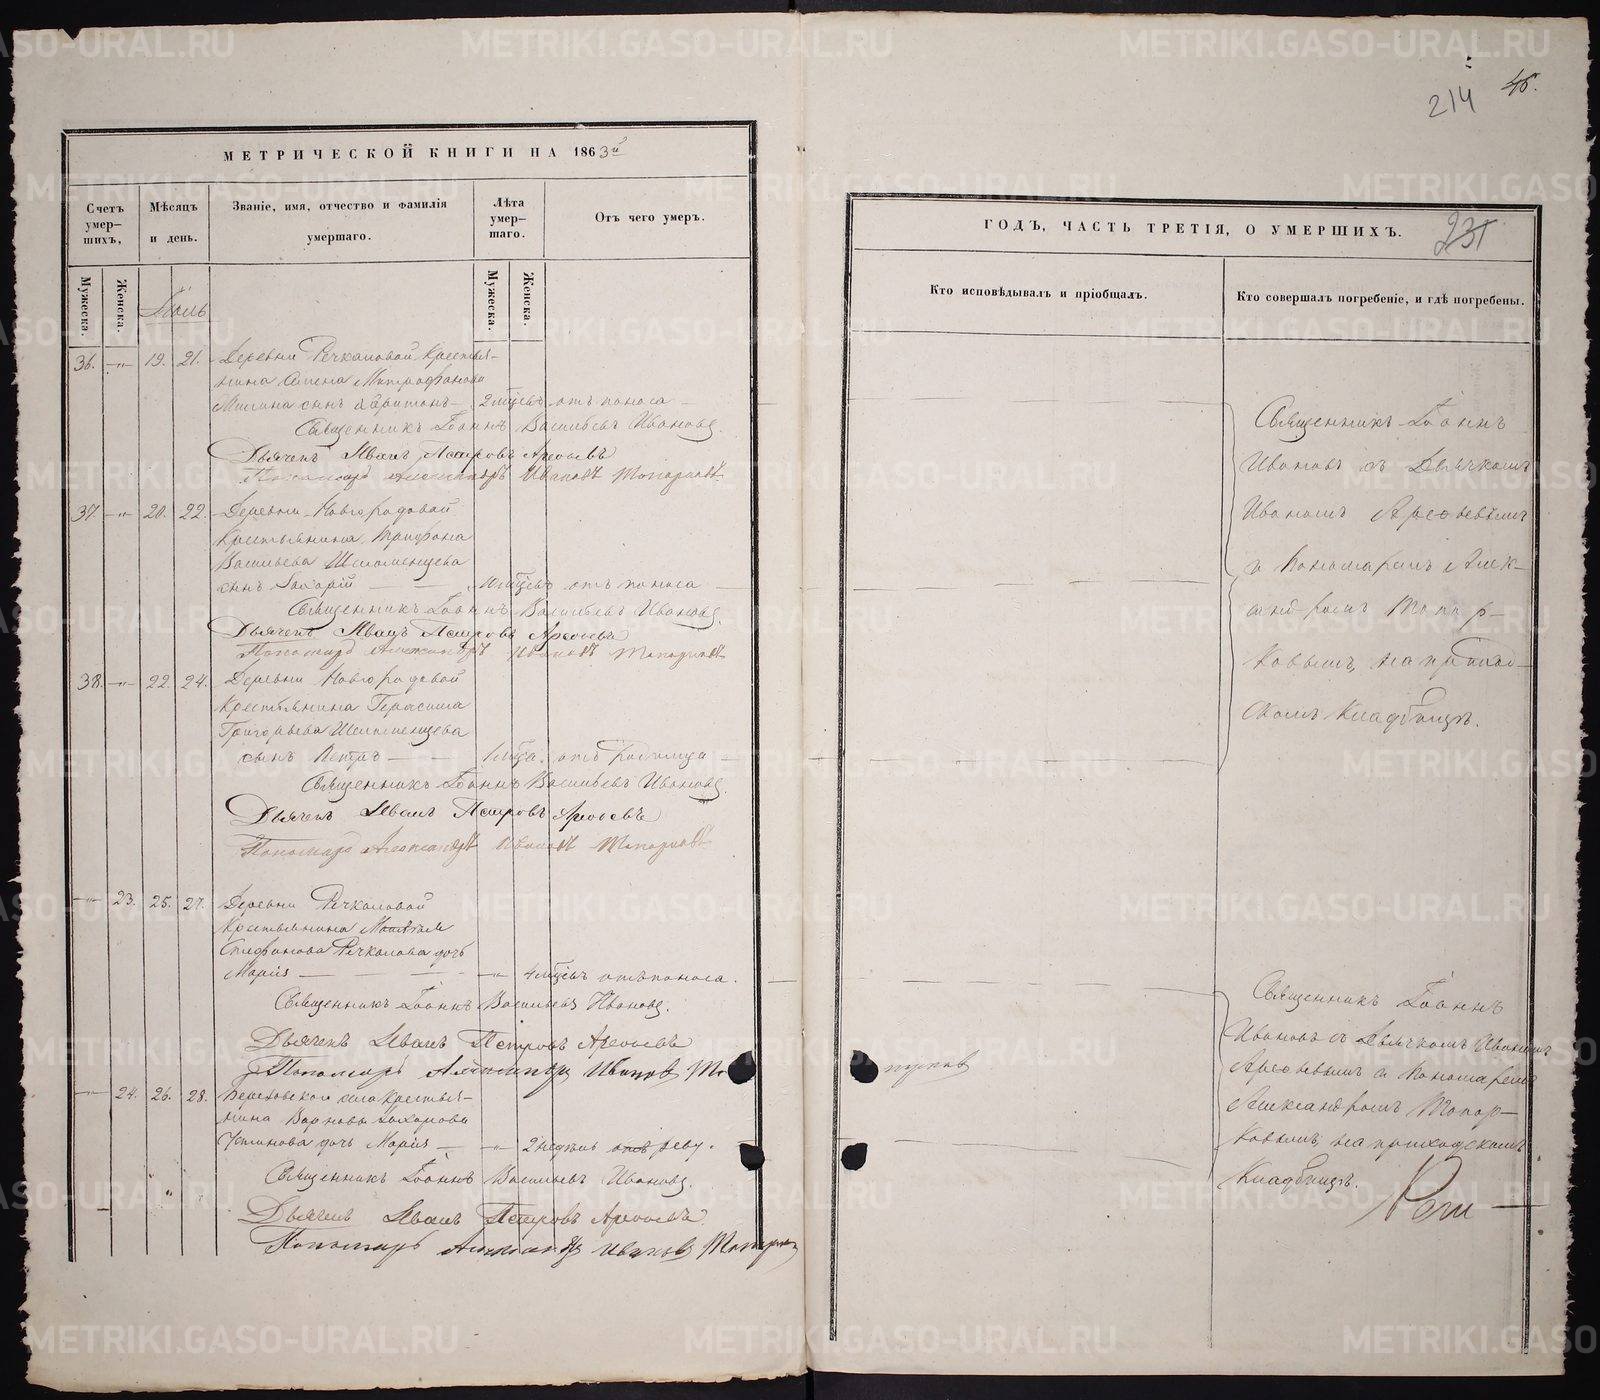 214
45.
МЕТРИЧЕСКОЙ КНИГИ НА 1863й
Счетъ умерших,
Мѣсяцъ и день.
Званіе, имя, отчество и фамилія умершаго.
Лѣта умершаго.
Отъ чего умеръ.
Мужеска.
Женска.
Мужеска.
Женска.
Іюль
36. — " — 19. 21. Деревни Речкаловой Крестья-
нина Семена Митрофанова
сынъ Харитонъ — 2 мѣсяцъ отъ поноса —
Священникъ Іоаннъ Васильевъ Ивановъ.
Дьячекъ Иванъ Петровъ Арефьевъ
Пономарь Александръ Ивановъ Топорковъ
37. — " — 20. 22. Деревни Новгородовой
Крестьянина Трифона
Васильева Шеломенцева
сынъ Захарій — — 10 мѣсяцъ отъ поноса —
Священникъ Іоаннъ Васильевъ Ивановъ.
Дьячекъ Иванъ Петровъ Арефьевъ
Пономарь Александръ Ивановъ Топорковъ
38. — " — 22. 24. Деревни Новгородовой
Крестьянина Герасима
Григорьева Шеломенцева
сынъ Петръ — — 1 мѣсяца. отъ родимца —
Священникъ Іоаннъ Васильевъ Ивановъ.
Дьячекъ Иванъ Петровъ Арефьевъ
Пономарь Александръ Ивановъ Топорковъ
— " — 23. 25. 27. Деревни Речкаловой
Крестьянина
Речкалова дочь
Марія — — — " — 4 мѣсяцъ отъ поноса.
Священникъ Іоаннъ Васильевъ Ивановъ.
Дьячекъ Иванъ Петровъ Арефьевъ
Пономарь Александръ Ивановъ Топорковъ
— " — 24. 26. 28. села Крестья-
нина Захарова
Устинова дочь Марія — — " — 2 недѣль отъ реву.
Священникъ Іоаннъ Васильевъ Ивановъ.
Дьячекъ Иванъ Петровъ Арефьевъ
Пономарь Александръ Ивановъ Топорков
ГОДЪ, ЧАСТЬ ТРЕТІЯ, О УМЕРШИХЪ.
231
Кто исповѣдывалъ и пріобщалъ.
Кто совершалъ погребеніе, и гдѣ погребены.
Священникъ Іоаннъ
Ивановъ съ Дьячкомъ
Иваномъ Арефьевымъ
и Пономаремъ Алек-
сандромъ Топор-
ковымъ, на приход-
скомъ Кладбищѣ.
Священникъ Іоаннъ
Ивановъ съ Дьячкомъ Иваномъ
Арефьевымъ и Пономаремъ
Александромъ Топор-
ковымъ, на приходскомъ
Кладбищѣ.
METRIKI.GASO-URAL.RU